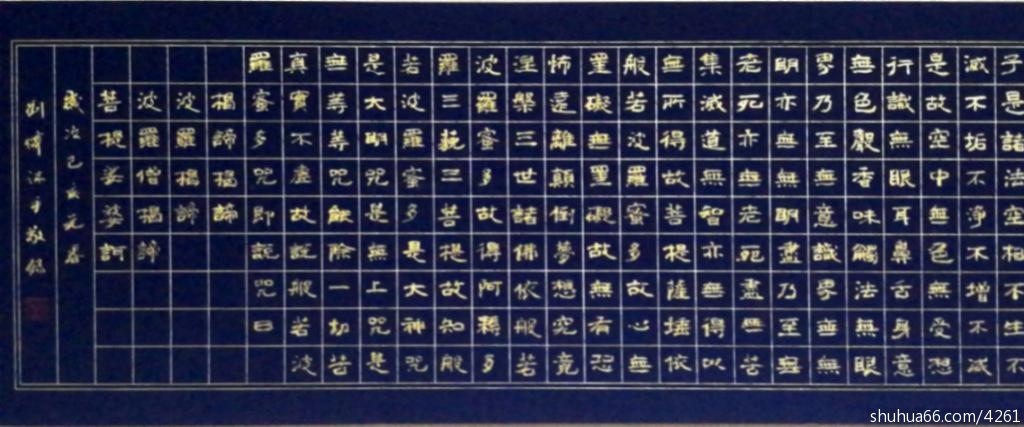 子是諸法空相不生不
滅不垢不淨不增不減
是故空中無色無受想
行識無眼耳鼻舌身意
無色聲香味觸法無眼
界乃至無意識界無無
明亦無無明盡乃至無
老死亦無老死盡無苦
集滅道無智亦無得以
無所得故菩提薩埵依
般若波羅蜜多故心無
罣礙無罣礙故無有恐
怖遠離顛倒夢想究竟
涅槃三世諸佛依般若
波羅蜜多故得阿耨多
羅三藐三菩提故知般
若波羅蜜多是大神咒
是大明咒是無上咒是
無等等咒能除一切苦
真實不虛故說般若波
羅蜜多咒即說咒曰
揭諦揭諦
波羅揭諦
波羅僧揭諦
菩提娑婆訶
歲次己亥元春
劉沐手敬錄
shuhua66.com/4261